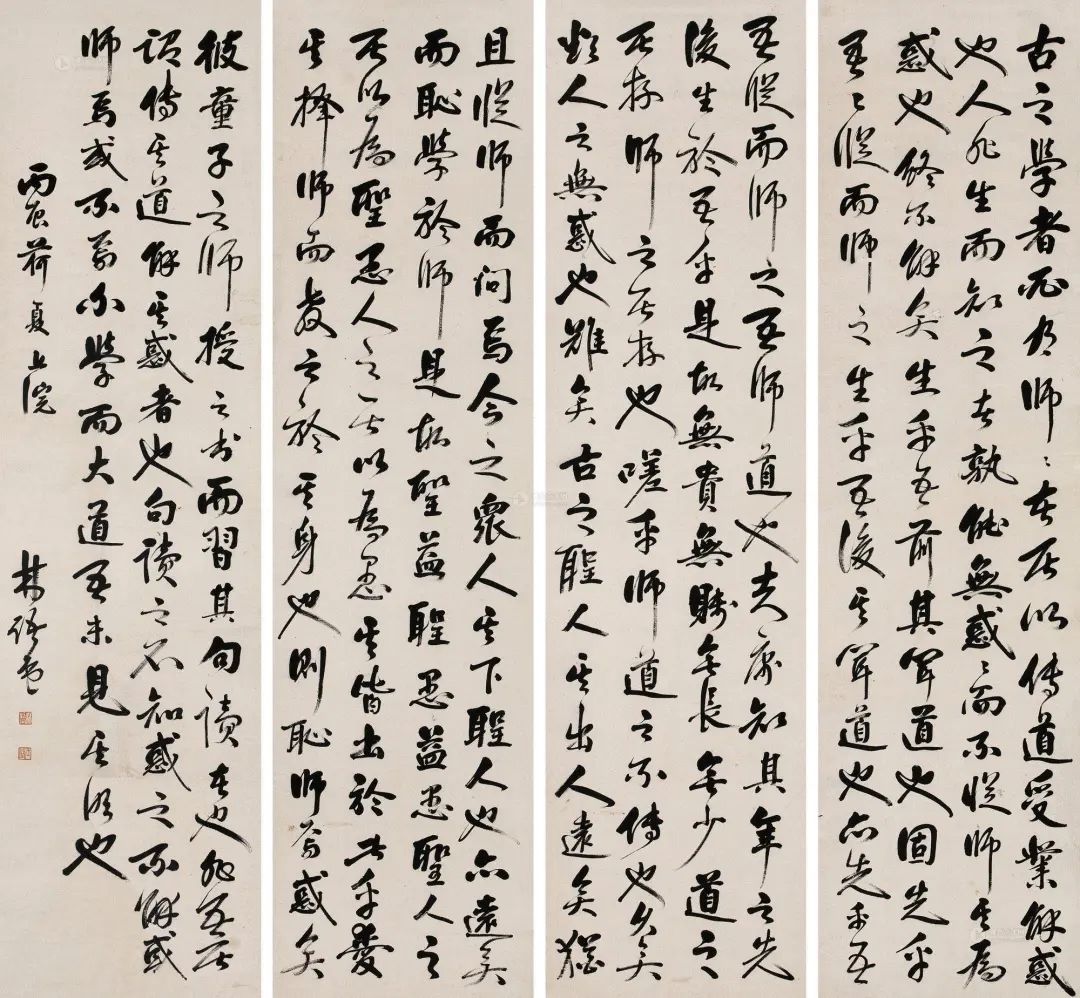 古之學者必有師〻者所以傳道受業解惑
也人非生而知之者孰能無惑〻而不從師其為
惑也終不解矣生乎吾前其聞道也固先乎
吾〻從而師之生乎吾後其聞道也亦先乎吾
吾從而師之吾師道也夫庸知其年之先
後生於吾乎是故無貴無賤無長無少道之
所存師之所存也嗟乎師道之不傳也久矣
欲人之無惑也難矣古之聖人其出人遠矣猶
且從師而問焉今之眾人其下聖人也亦遠矣
而恥學於師是故聖益聖愚益愚聖人之
所以為聖愚人之所以為愚其皆出於此乎愛
其擇師而教之於其身也則恥師焉惑矣
彼童子之師授之書而習其句讀者也非吾所
謂傳其道解其惑者也句讀之不知惑之不解或
師焉或不焉小學而大道吾未見其明也
丙辰荷夏上浣
林